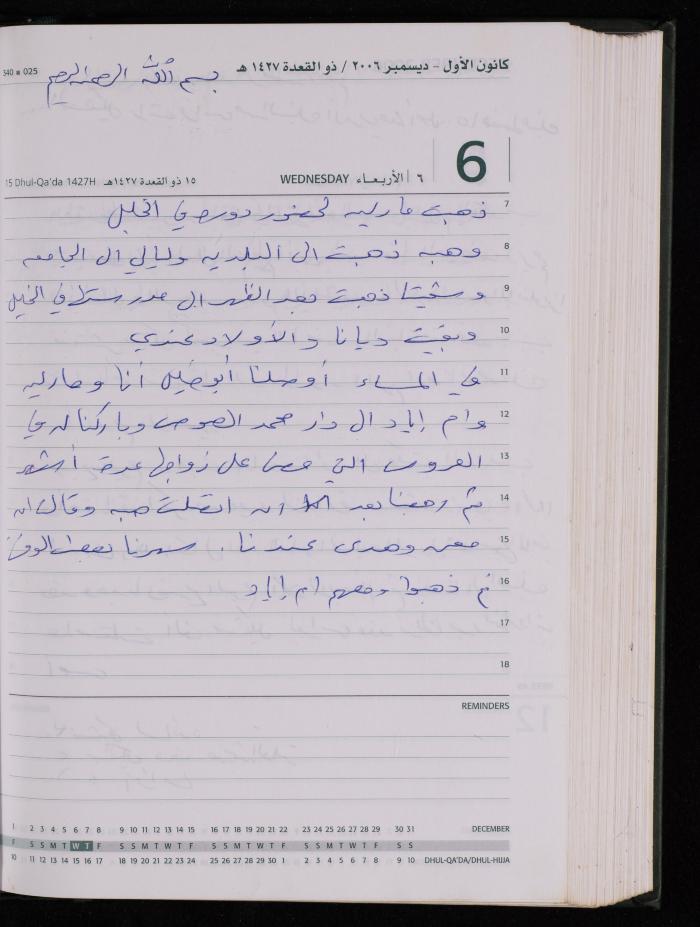 كانون الأول - ديسمبر ٢٠٠٦ / ذو القعدة ١٤٢٧ هـ
340 ■ 025
بسم الله الرحمن الرحيم
6
15 Dhul-Qa'da 1427H ١٥ ذو القعدة ١٤٢٧هـ WEDNESDAY ٦ الأربعاء
7 ذهبت مارليه لحضور دورة في الخليل
8 وهبه ذهبت الى البلديه وليالي ال الجامعه
9 ذهبت بعد الظهر ال في الخليل
10 وبقيت ديانا والأولاد عندي
11 في المساء أوصلنا أبو خليل أنا ومارليه
12 وام إياد ال دار محمد الصوص وباركنا لهم في
13 العروس التي مضى على زواجها عدة أشهر
14 ثم رجعنا بعد ان اتصلت هبه وقالت ان
15 معن وهدى عندنا . سهرنا بعض الوقت
16 ثم ذهبوا ومعهم ام إياد
17
18
REMINDERS
1 2 3 4 5 6 7 8 9 10 11 12 13 14 15 16 17 18 19 20 21 22 23 24 25 26 27 28 29 30 31 DECEMBER
F S S M T W T F S S M T W T F S S M T W T F S S M T W T F S S
10 11 12 13 14 15 16 17 18 19 20 21 22 23 24 25 26 27 28 29 30 1 2 3 4 5 6 7 8 9 10 DHUL-QA'DA/DHUL-HIJJA